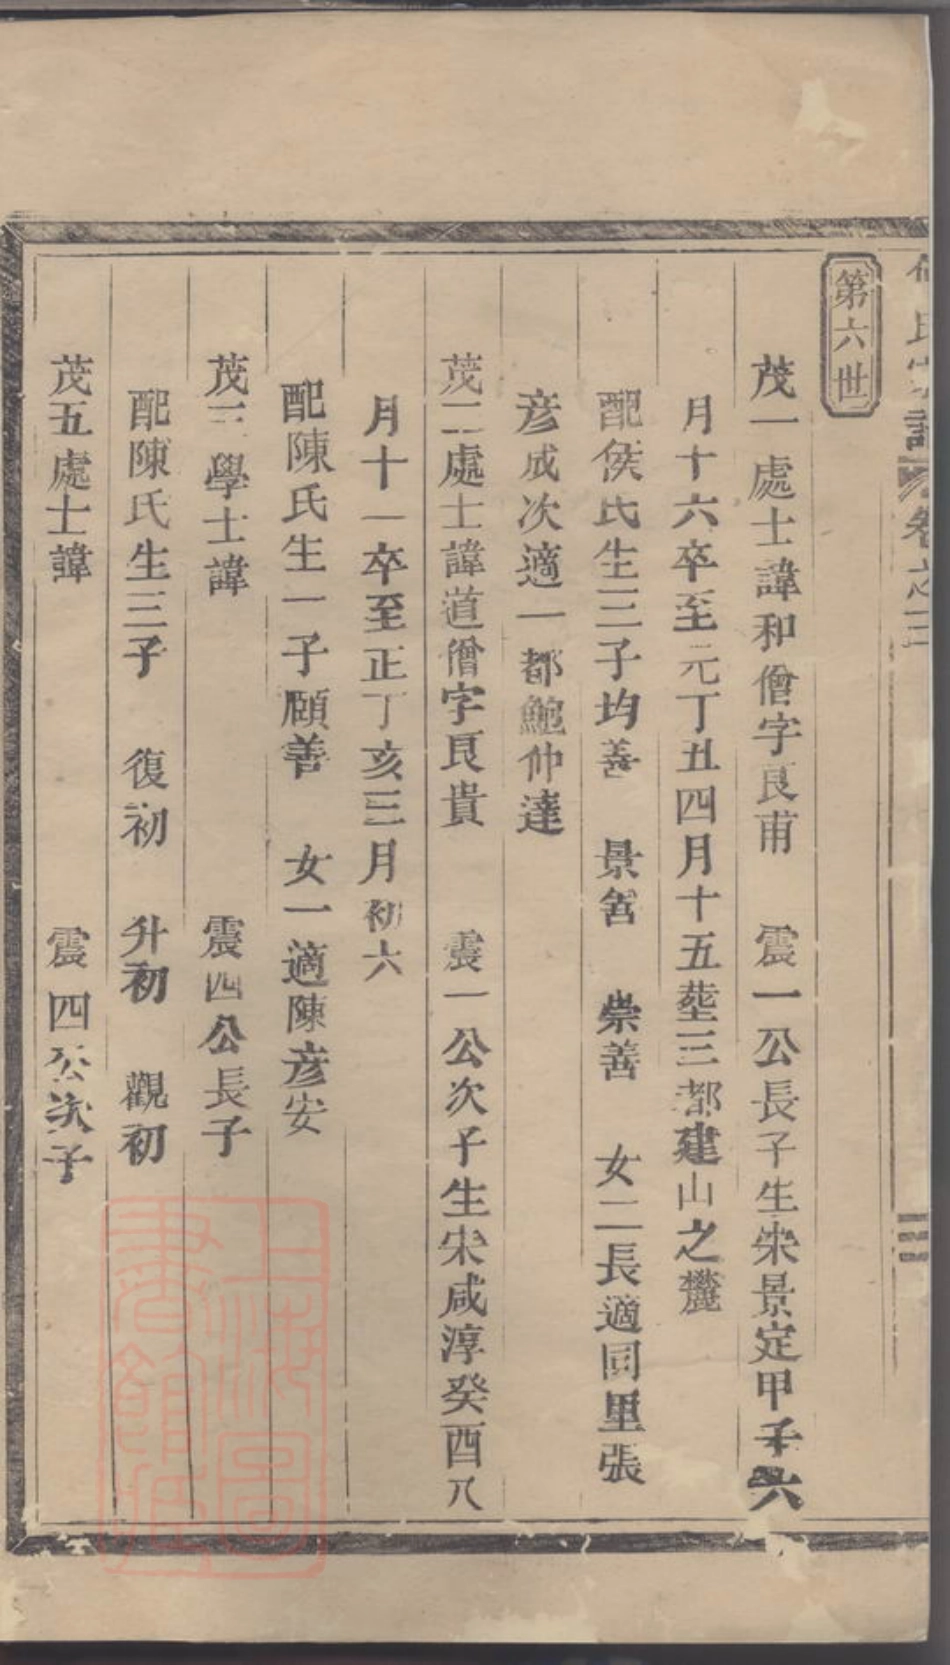 氏宗譜 卷之二
三
第六世
茂一處士諱和僧字艮甫 震一公長子生宋景定甲子六
月十六卒至元丁丑四月十五塟三都建山之麓
配侯氏生三子均善 景善 崇善 女二長適同里張
彦成次適一都鮑仲達
茂二處士諱道僧字艮貴 震一公次子生宋咸淳癸酉八
月十一卒至正丁亥三月初六
配陳氏生一子頤善 女一適陳彦安
茂三學士諱 震四公長子
配陳氏生三子 復初 升初 觀初
茂五處士諱 震四公次子
上海圖書館藏